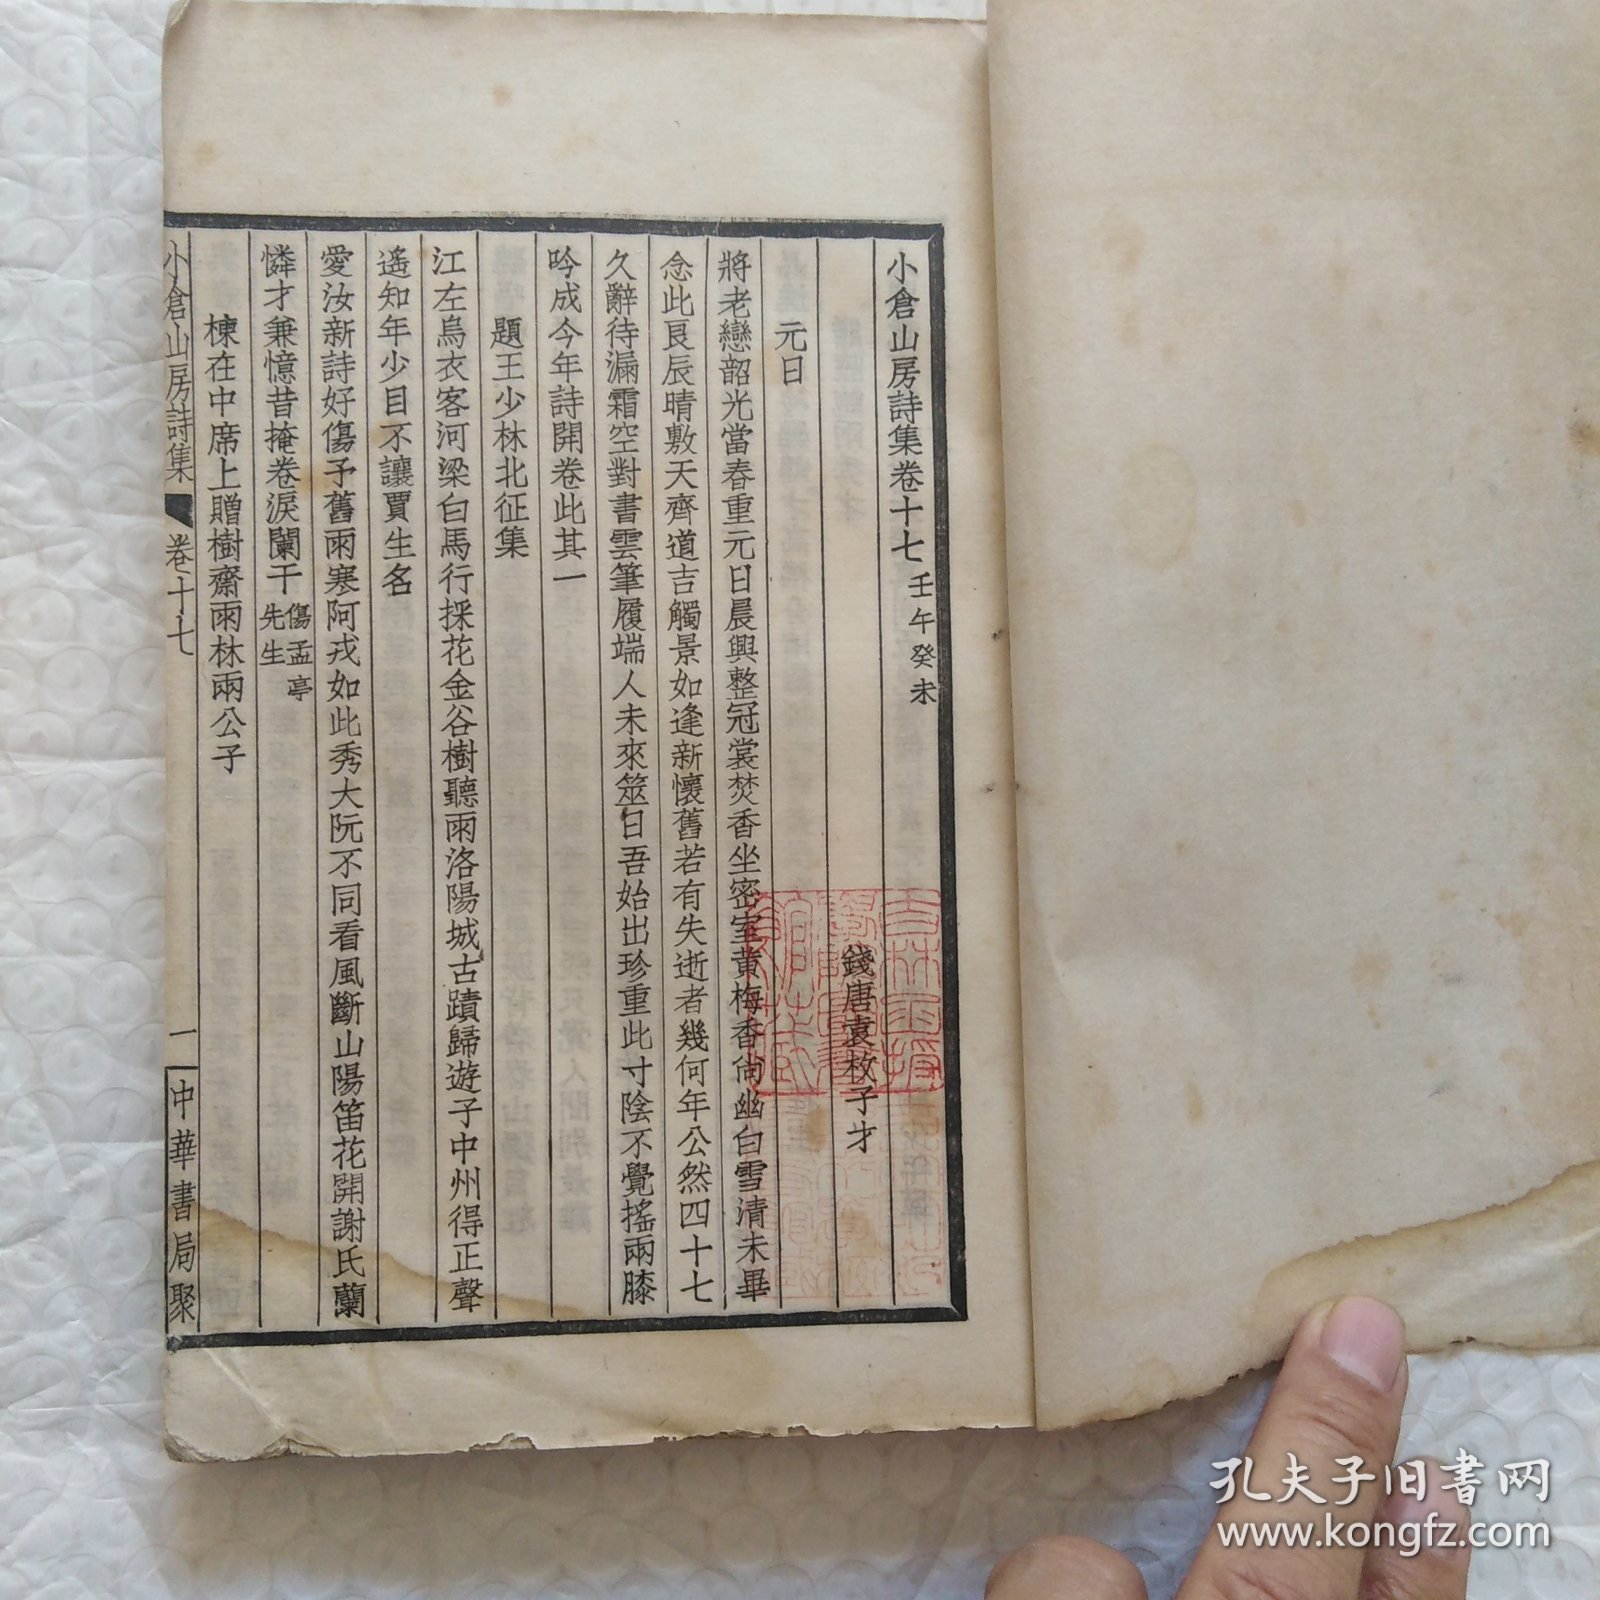 小倉山房詩集卷十七 壬午癸未
錢唐袁枚子才
元日
將老戀韶光當春重元日晨興整冠裳焚香坐密室黃梅香尙幽白雪清未畢
念此良辰晴敷天齊道吉觸景如逢新懷舊若有失逝者幾何年公然四十七
久辭待漏霜空對書雲筆履端人未來筮日吾始出珍重此寸陰不覺搖兩膝
吟成今年詩開卷此其一
題王少林北征集
江左烏衣客河梁白馬行採花金谷樹聽雨洛陽城古蹟歸遊子中州得正聲
遙知年少日不讓賈生名
愛汝新詩好傷予舊雨寒阿戎如此秀大阮不同看風斷山陽笛花開謝氏蘭
憐才兼憶昔掩卷淚闌干 傷孟亭先生
棟在中席上贈樹齋雨林兩公子
小倉山房詩集 卷十七 一 中華書局聚
孔夫子旧书网
www.kongfz.com